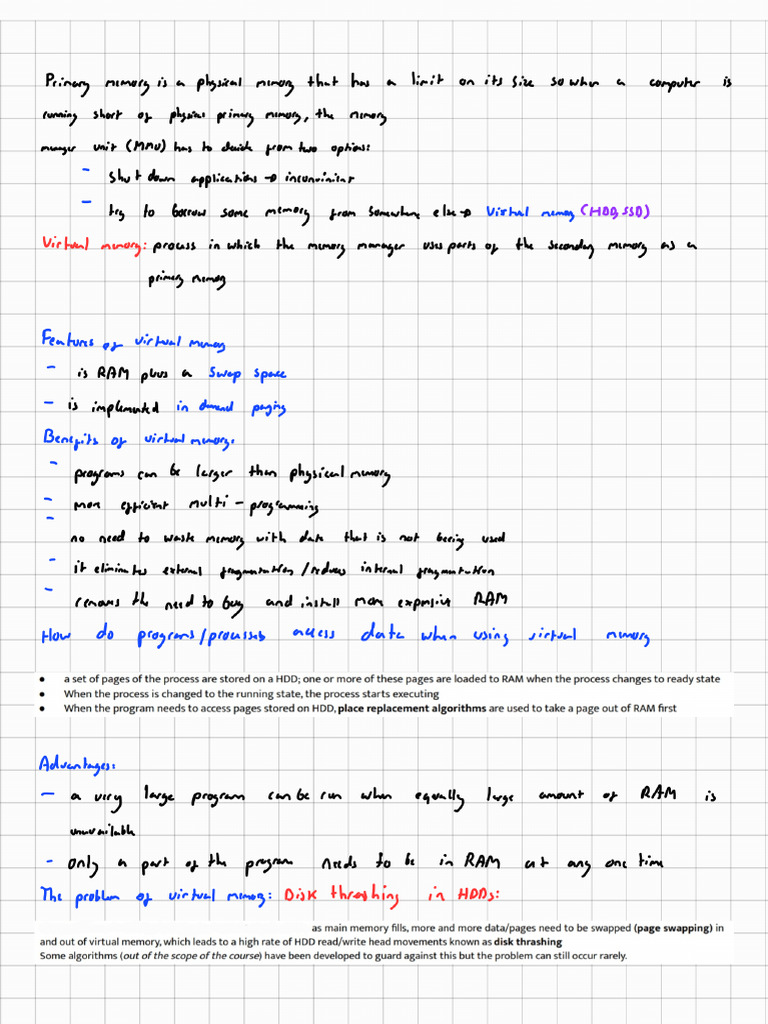 Primary memory is a physical memory that has a limit on its size so when a computer is
running short of physical primary memory, the memory
manager unit (MMU) has to decide from two options:
- Shut down applications → inconvinient
- try to borrow some memory from somewhere else → Virtual memory (HDD, SSD)
Virtual memory: process in which the memory manager uses parts of the secondary memory as a
primary memory
Features of virtual memory
- is RAM plus a Swap space
- is implemented in demand paging
Benefits of virtual memory:
- programs can be larger than physical memory
- more efficient multi-programming
- no need to waste memory with data that is not being used
- it eliminates external fragmentation/reduces internal fragmentation
- removes the need to buy and install more expensive RAM
How do programs/processes access data when using virtual memory
• a set of pages of the process are stored on a HDD; one or more of these pages are loaded to RAM when the process changes to ready state
• When the process is changed to the running state, the process starts executing
• When the program needs to access pages stored on HDD, place replacement algorithms are used to take a page out of RAM first
Advantages:
- a very large program can be run when equally large amount of RAM is
unavailable
- only a part of the program needs to be in RAM at any one time
The problem of virtual memory: Disk thrashing in HDDs:
as main memory fills, more and more data/pages need to be swapped (page swapping) in
and out of virtual memory, which leads to a high rate of HDD read/write head movements known as disk thrashing
Some algorithms (out of the scope of the course) have been developed to guard against this but the problem can still occur rarely.